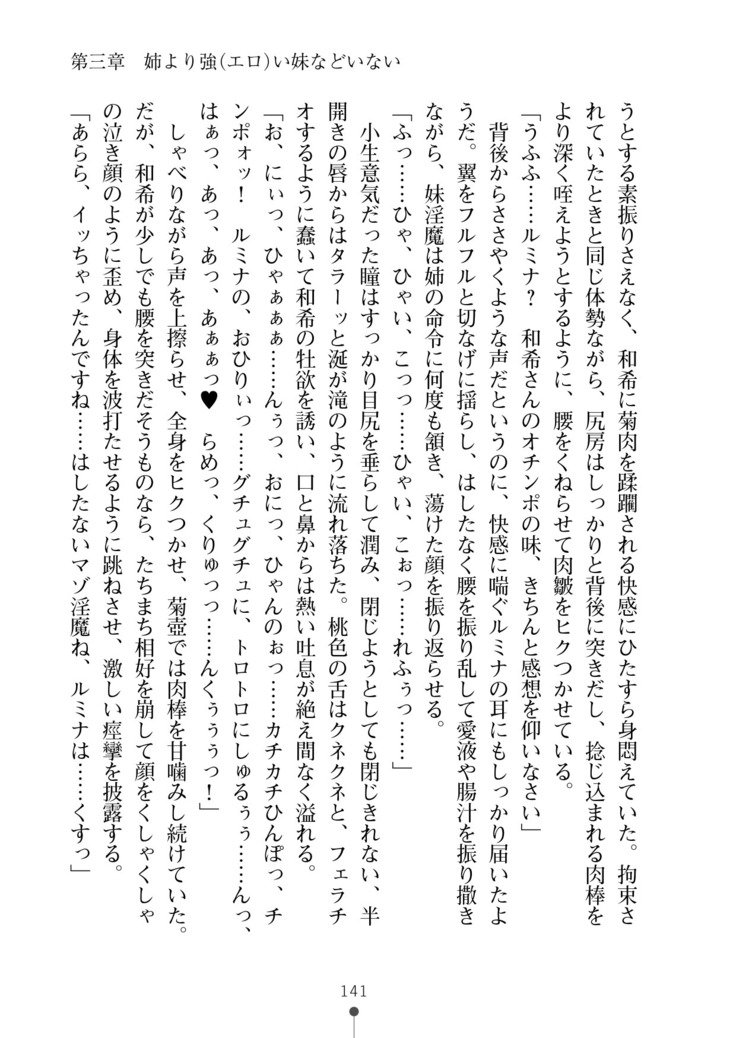 第三章　姉より強(エロ)い妹などいない
うとする素振りさえなく、和希に菊肉を蹂躙される快感にひたすら身悶えていた。拘束さ
れていたときと同じ体勢ながら、尻房はしっかりと背後に突きだし、捻じ込まれる肉棒を
より深く咥えようとするように、腰をくねらせて肉皺をヒクつかせている。
「うふふ……ルミナ？　和希さんのオチンポの味、きちんと感想を仰いなさい」
　背後からささやくような声だというのに、快感に喘ぐルミナの耳にもしっかり届いたよ
うだ。翼をフルフルと切なげに揺らし、はしたなく腰を振り乱して愛液や腸汁を振り撒き
ながら、妹淫魔は姉の命令に何度も頷き、蕩けた顔を振り返らせる。
「ふっ……ひゃ、ひゃい、こっっ……ひゃい、こぉっ……れふぅっ……」
　小生意気だった瞳はすっかり目尻を垂らして潤み、閉じようとしても閉じきれない、半
開きの唇からはタラーッと涎が滝のように流れ落ちた。桃色の舌はクネクネと、フェラチ
オするように蠢いて和希の牡欲を誘い、口と鼻からは熱い吐息が絶え間なく溢れる。
「お、にぃっ、ひゃぁぁぁ……んぅっ、おにっ、ひゃんのぉっ……カチカチひんぽっ、チ
ンポォッ！　ルミナの、おひりぃっ……グチュグチュに、トロトロにしゅるぅぅ……んっ、
はぁっ、あっ、あっ、あぁぁっ♥　らめっ、くりゅっっ……んくぅぅぅっ！」
　しゃべりながら声を上擦らせ、全身をヒクつかせ、菊壺では肉棒を甘噛みし続けていた。
だが、和希が少しでも腰を突きだそうものなら、たちまち相好を崩して顔をくしゃくしゃ
の泣き顔のように歪め、身体を波打たせるように跳ねさせ、激しい痙攣を披露する。
「あらら、イッちゃったんですね……はしたないマゾ淫魔ね、ルミナは……くすっ」
141